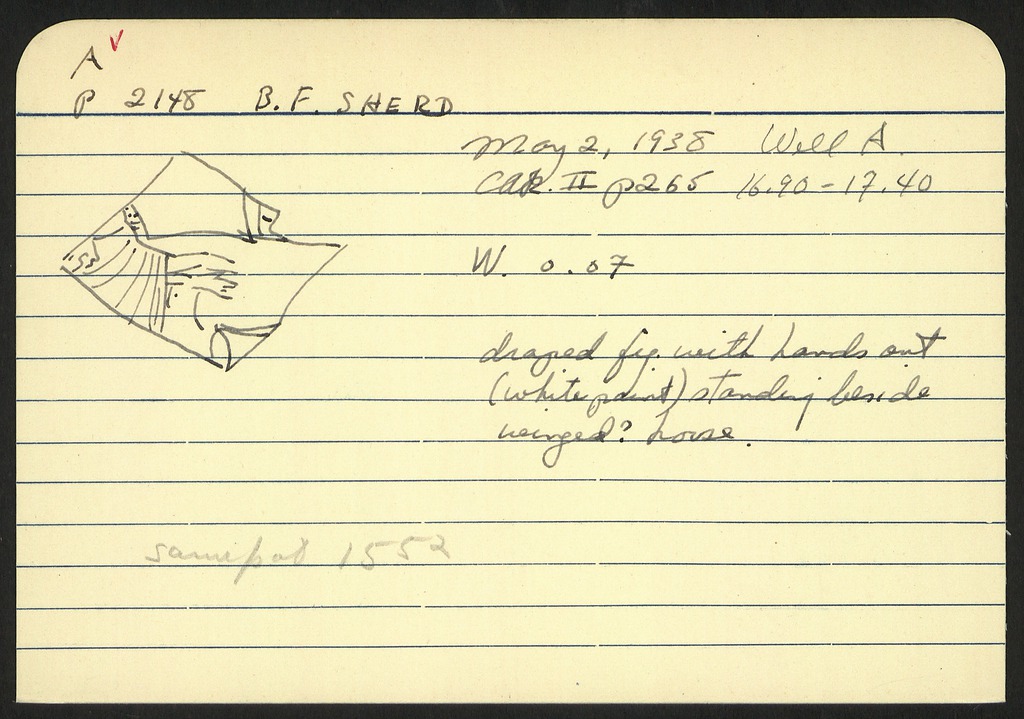 A ✓
P 2148 B.F. SHERD
May 2, 1938 Well A.
CAR. II p265 16.90 - 17.40
W. 0.07
draped fig. with hands out
(white paint) standing beside
winged? horse.
same pot 1552